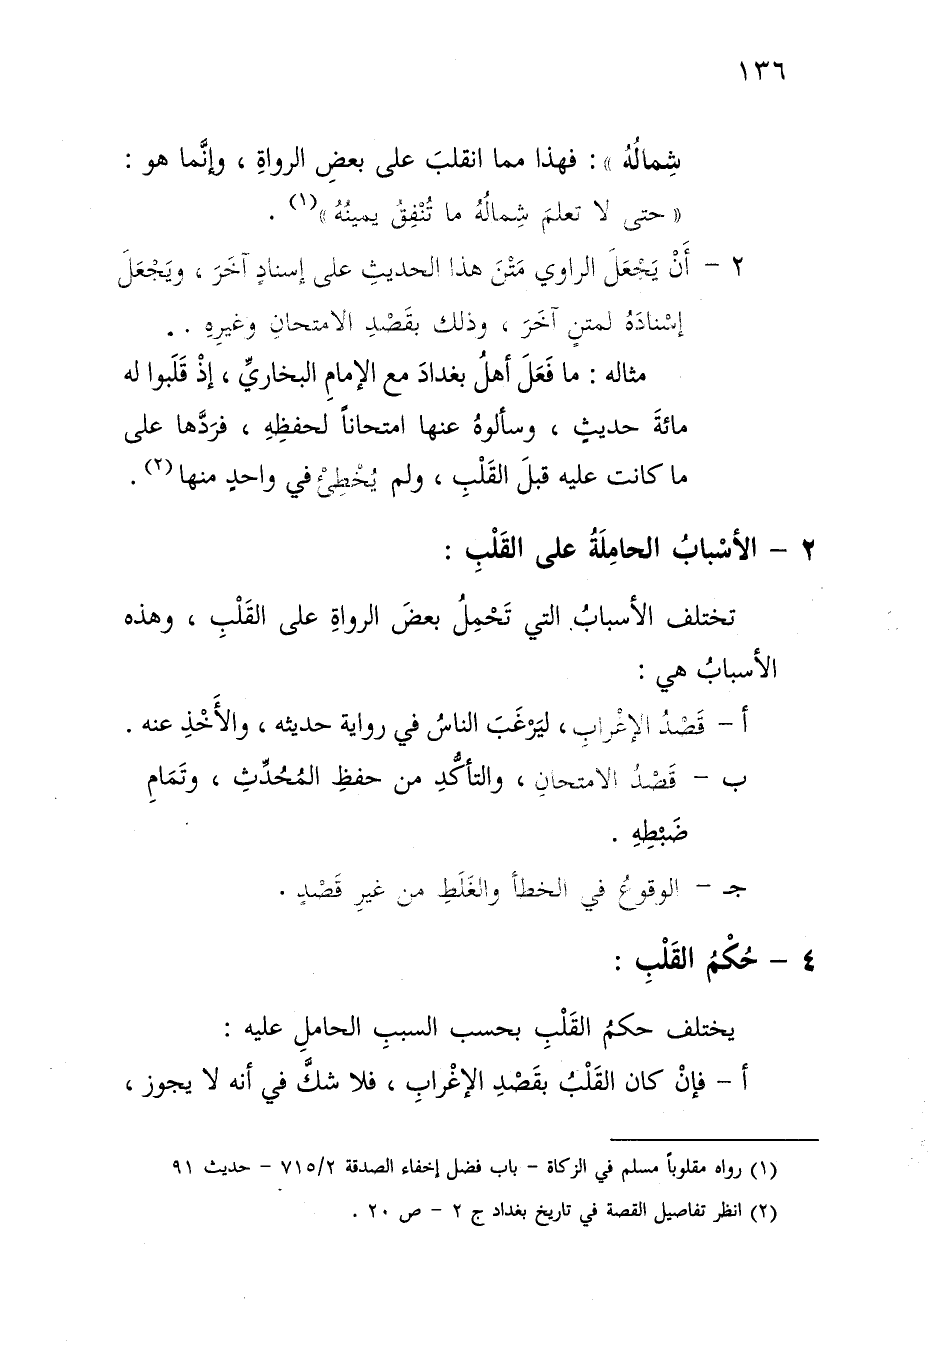 ١٣٦
شِمالُهُ » : فهذا مما انقلبَ على بعضِ الرواةِ ، وإنَّما هو :
« حتى لا تعلمَ شِمالُهُ ما تُنْفِقُ يمينُهُ »(١) .
٢ – أَنْ يَجْعَلَ الراوي مَتْنَ هذا الحديثِ على إسنادٍ آخَرَ ، ويَجْعَلَ
إسْنادَهُ لمتنٍ آخَرَ ، وذلك بقَصْدِ الامتحانِ وغيرِهِ . .
مثاله : ما فَعَلَ أهلُ بغدادَ مع الإمامِ البخاريِّ ، إذْ قَلَبوا له
مائةَ حديثٍ ، وسألوهُ عنها امتحاناً لحفظِهِ ، فرَدَّها على
ما كانت عليه قبلَ القَلْبِ ، ولم يُخْطِئْ في واحدٍ منها(٢) .
٢ – الأسْبابُ الحامِلَةُ على القَلْبِ :
تختلف الأسبابُ التي تَحْمِلُ بعضَ الرواةِ على القَلْبِ ، وهذه
الأسبابُ هي :
أ – قَصْدُ الإغْرابِ ، ليَرْغَبَ الناسُ في رواية حديثه ، والأَخْذِ عنه .
ب – قَصْدُ الامتحانِ ، والتأكُّدِ من حفظِ المُحَدِّثِ ، وتَمَامِ
ضَبْطِهِ .
جـ – الوقوعُ في الخطأ والغَلَطِ من غيرِ قَصْدٍ .
٤ – حُكْمُ القَلْبِ :
يختلف حكمُ القَلْبِ بحسب السببِ الحاملِ عليه :
أ – فإنْ كان القَلْبُ بقَصْدِ الإغْرابِ ، فلا شكَّ في أنه لا يجوز ،
(١) رواه مقلوباً مسلم في الزكاة – باب فضل إخفاء الصدقة ٧١٥/٢ – حديث ٩١
(٢) انظر تفاصيل القصة في تاريخ بغداد ج ٢ – ص ٢٠ .